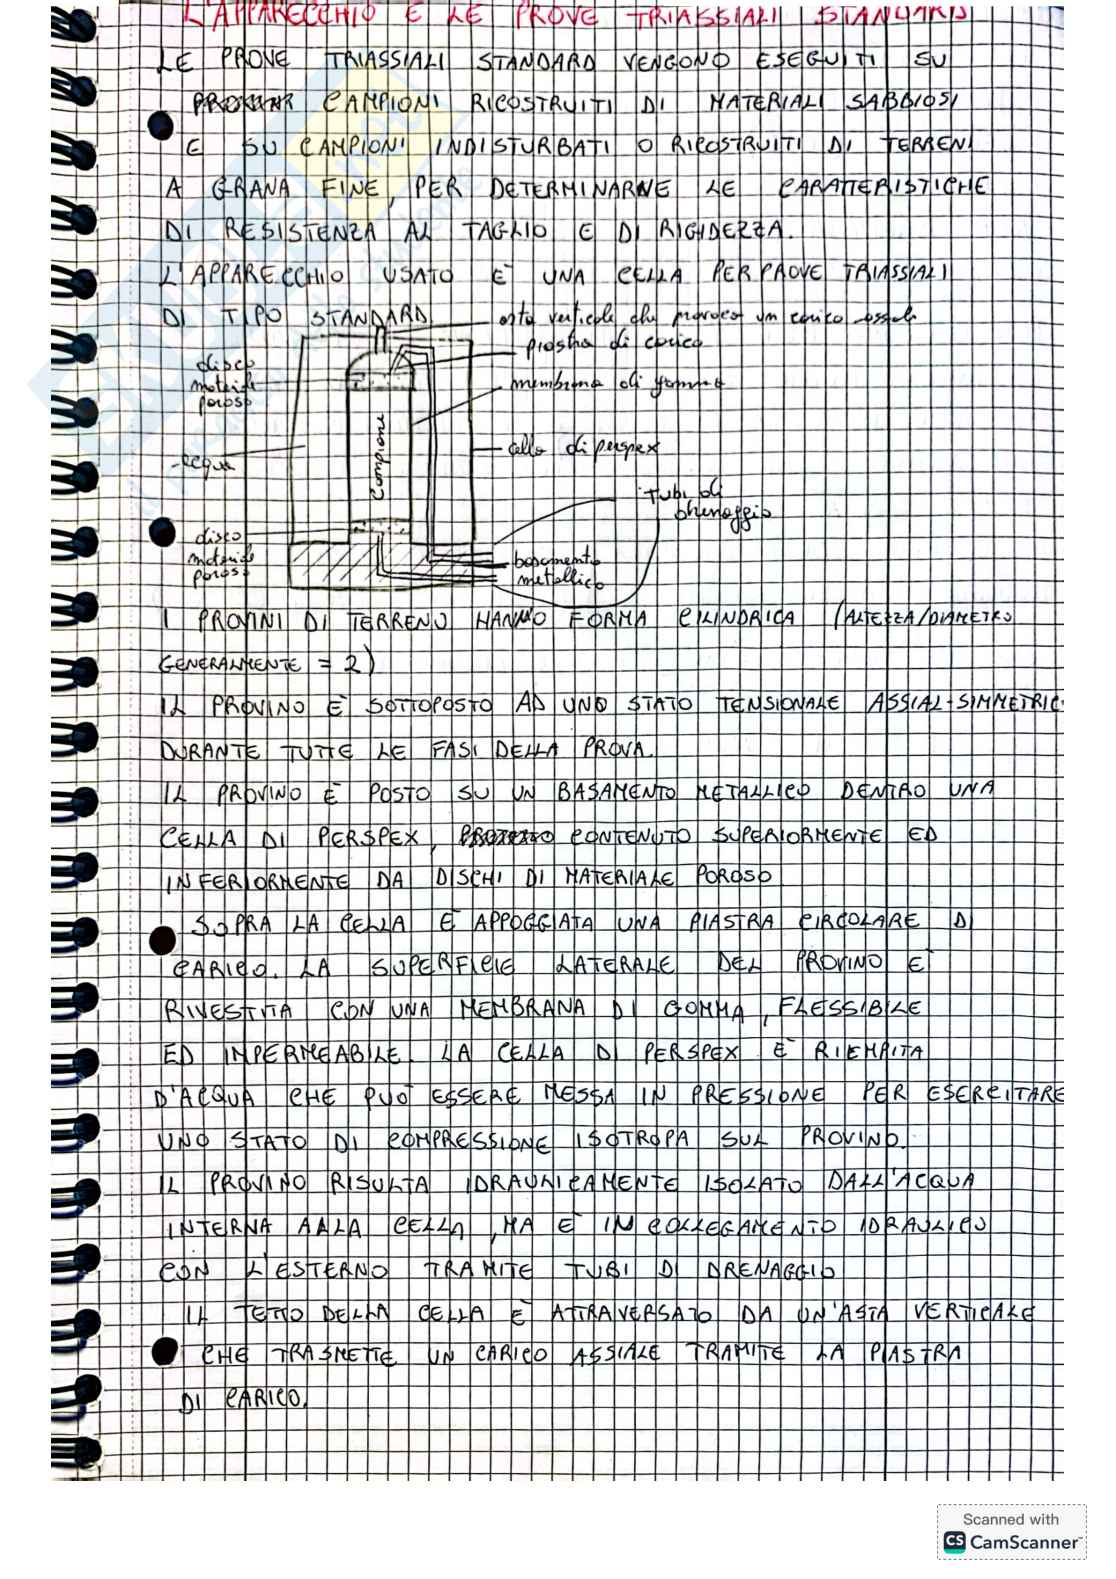 L'APPARECCHIO E LE PROVE TRIASSIALI STANDARD
LE PROVE TRIASSIALI STANDARD VENGONO ESEGUITI SU
CAMPIONI RICOSTRUITI DI MATERIALI SABBIOSI
E SU CAMPIONI INDISTURBATI O RICOSTRUITI DI TERRENI
A GRANA FINE, PER DETERMINARNE LE CARATTERISTICHE
DI RESISTENZA AL TAGLIO E DI RIGIDEZZA.
L'APPARECCHIO USATO E' UNA CELLA PER PROVE TRIASSIALI
DI TIPO STANDARD.
asta verticale che provoca un carico assiale
piastra di carico
disco
materiale
poroso
membrana di gomma
campione
cella di perspex
acqua
tubi di
drenaggio
disco
materiale
poroso
basamento
metallico
I PROVINI DI TERRENO HANNO FORMA CILINDRICA (ALTEZZA/DIAMETRO
GENERALMENTE = 2)
IL PROVINO È SOTTOPOSTO AD UNO STATO TENSIONALE ASSIAL-SIMMETRIC
DURANTE TUTTE LE FASI DELLA PROVA.
IL PROVINO È POSTO SU UN BASAMENTO METALLICO DENTRO UNA
CELLA DI PERSPEX, CONTENUTO SUPERIORMENTE ED
INFERIORMENTE DA DISCHI DI MATERIALE POROSO
SOPRA LA CELLA È APPOGGIATA UNA PIASTRA CIRCOLARE DI
CARICO. LA SUPERFICIE LATERALE DEL PROVINO È
RIVESTITA CON UNA MEMBRANA DI GOMMA, FLESSIBILE
ED IMPERMEABILE. LA CELLA DI PERSPEX È RIEMPITA
D'ACQUA CHE PUÒ ESSERE MESSA IN PRESSIONE PER ESERCITARE
UNO STATO DI COMPRESSIONE ISOTROPA SUL PROVINO.
IL PROVINO RISULTA IDRAULICAMENTE ISOLATO DALL'ACQUA
INTERNA ALLA CELLA, MA È IN COLLEGAMENTO IDRAULICO
CON L'ESTERNO TRAMITE TUBI DI DRENAGGIO
IL TETTO DELLA CELLA È ATTRAVERSATO DA UN'ASTA VERTICALE
CHE TRASMETTE UN CARICO ASSIALE TRAMITE LA PIASTRA
DI CARICO.
Scanned with
CS CamScanner